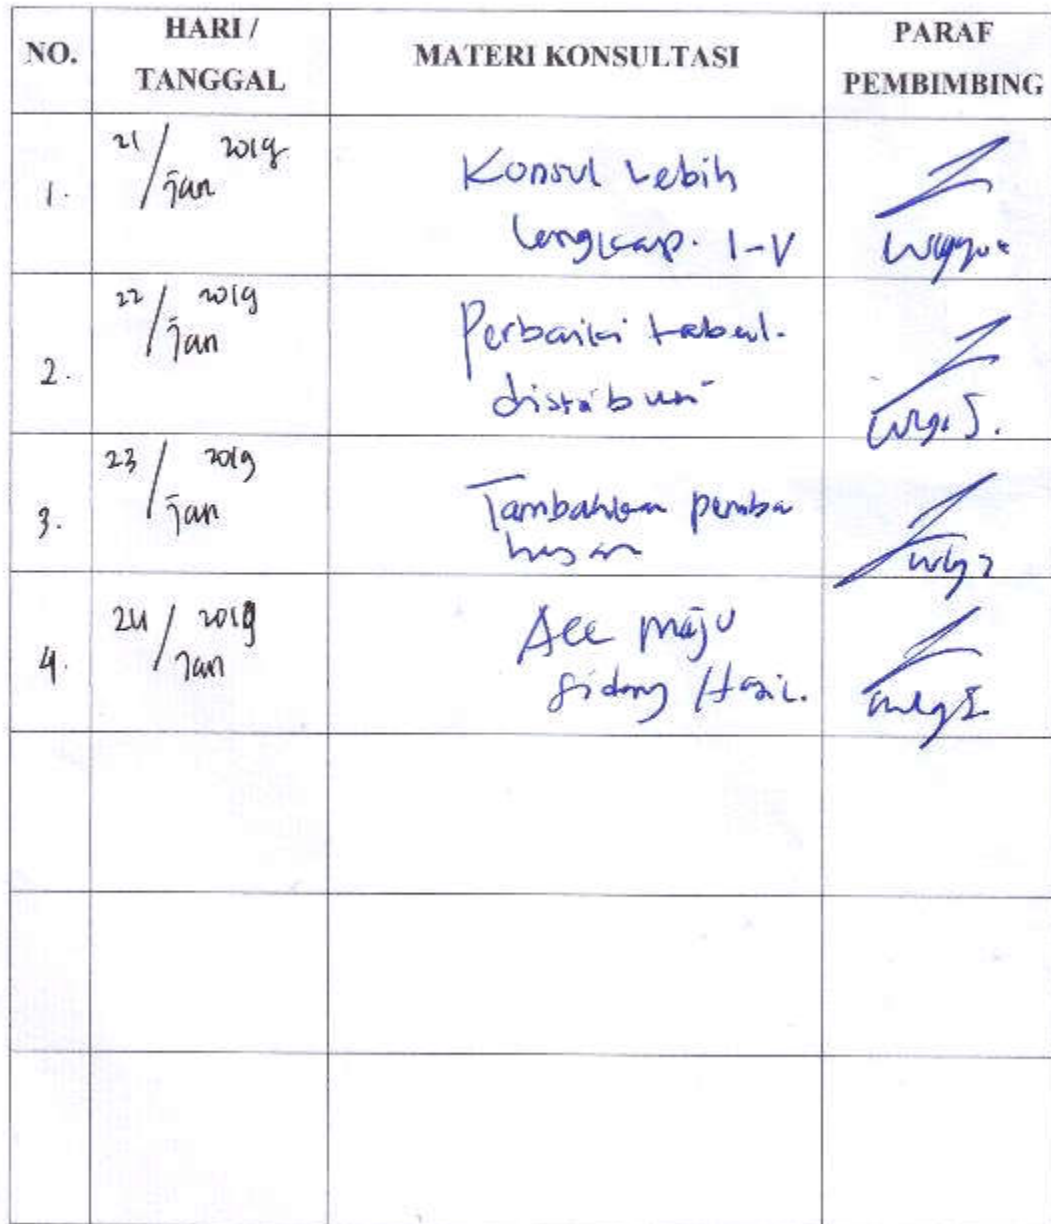 NO. HARI / TANGGAL MATERI KONSULTASI PARAF PEMBIMBING
1. 21 / Jan 2019 Konsul Lebih
lengkap. I-V
2. 22 / Jan 2019 Perbaiki tabel.
distribusi
3. 23 / Jan 2019 Tambahkan pemba
hasan
4. 24 / Jan 2019 Acc maju
sidang Hasil.